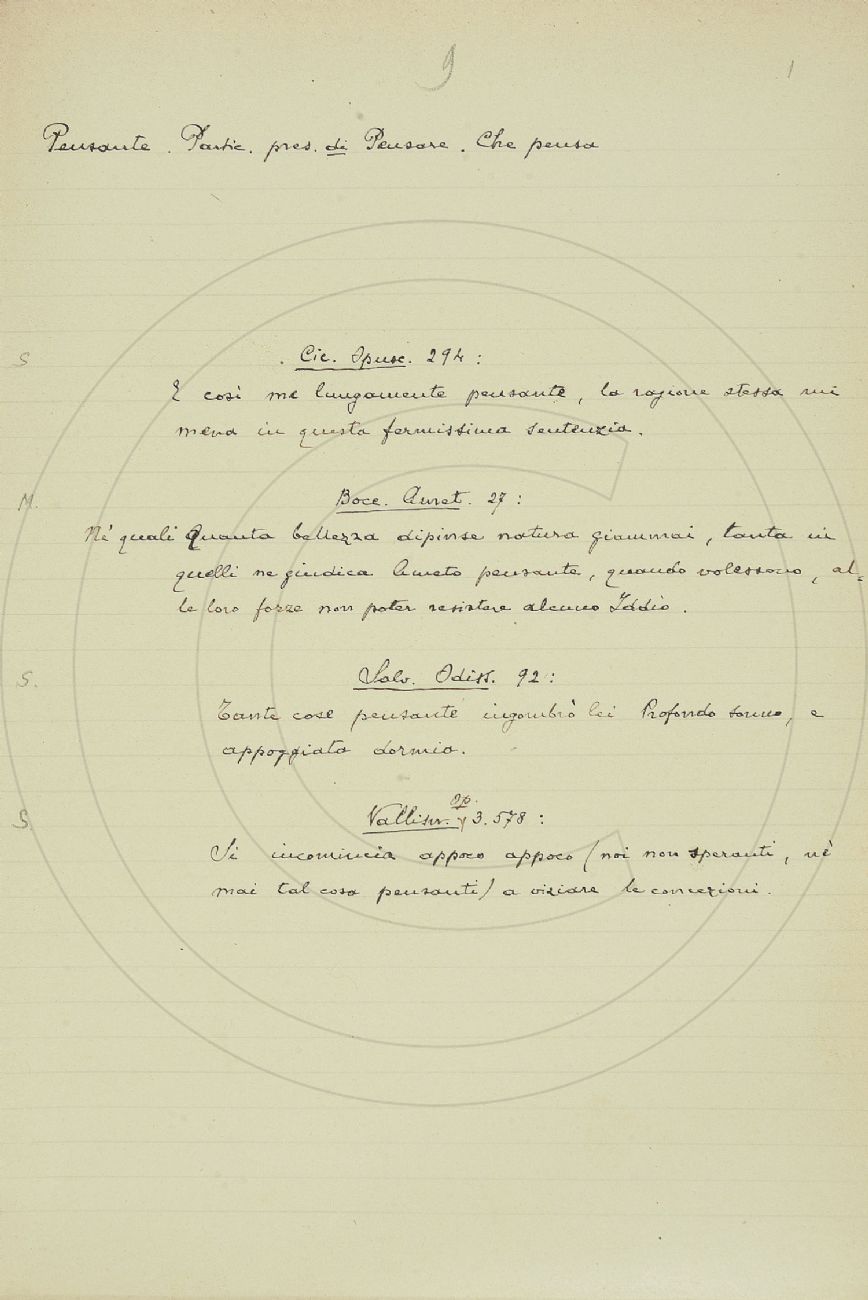 9
1
Pensante. Partic. pres. di Pensare. Che pensa
S
Cic. Opusc. 294:
E così me lungamente pensante, la ragione stessa mi
mena in questa fermissima sentenzia.
M.
Bocc. Amet. 27:
Ne' quali Quanta bellezza dipinse natura giammai, tanta in
quelli ne giudica Ameto pensante, quando volessono, al-
le loro forze non poter resistere alcuno Iddio.
S.
Salv. Odiss. 92:
Tante cose pensante ingombrò lei Profondo sonno, e
appoggiata dormia.
S.
Vallisn. Op. 3. 578:
Si incomincia appoco appoco (noi non speranti, nè
mai tal cosa pensanti) a viziare le concezioni.